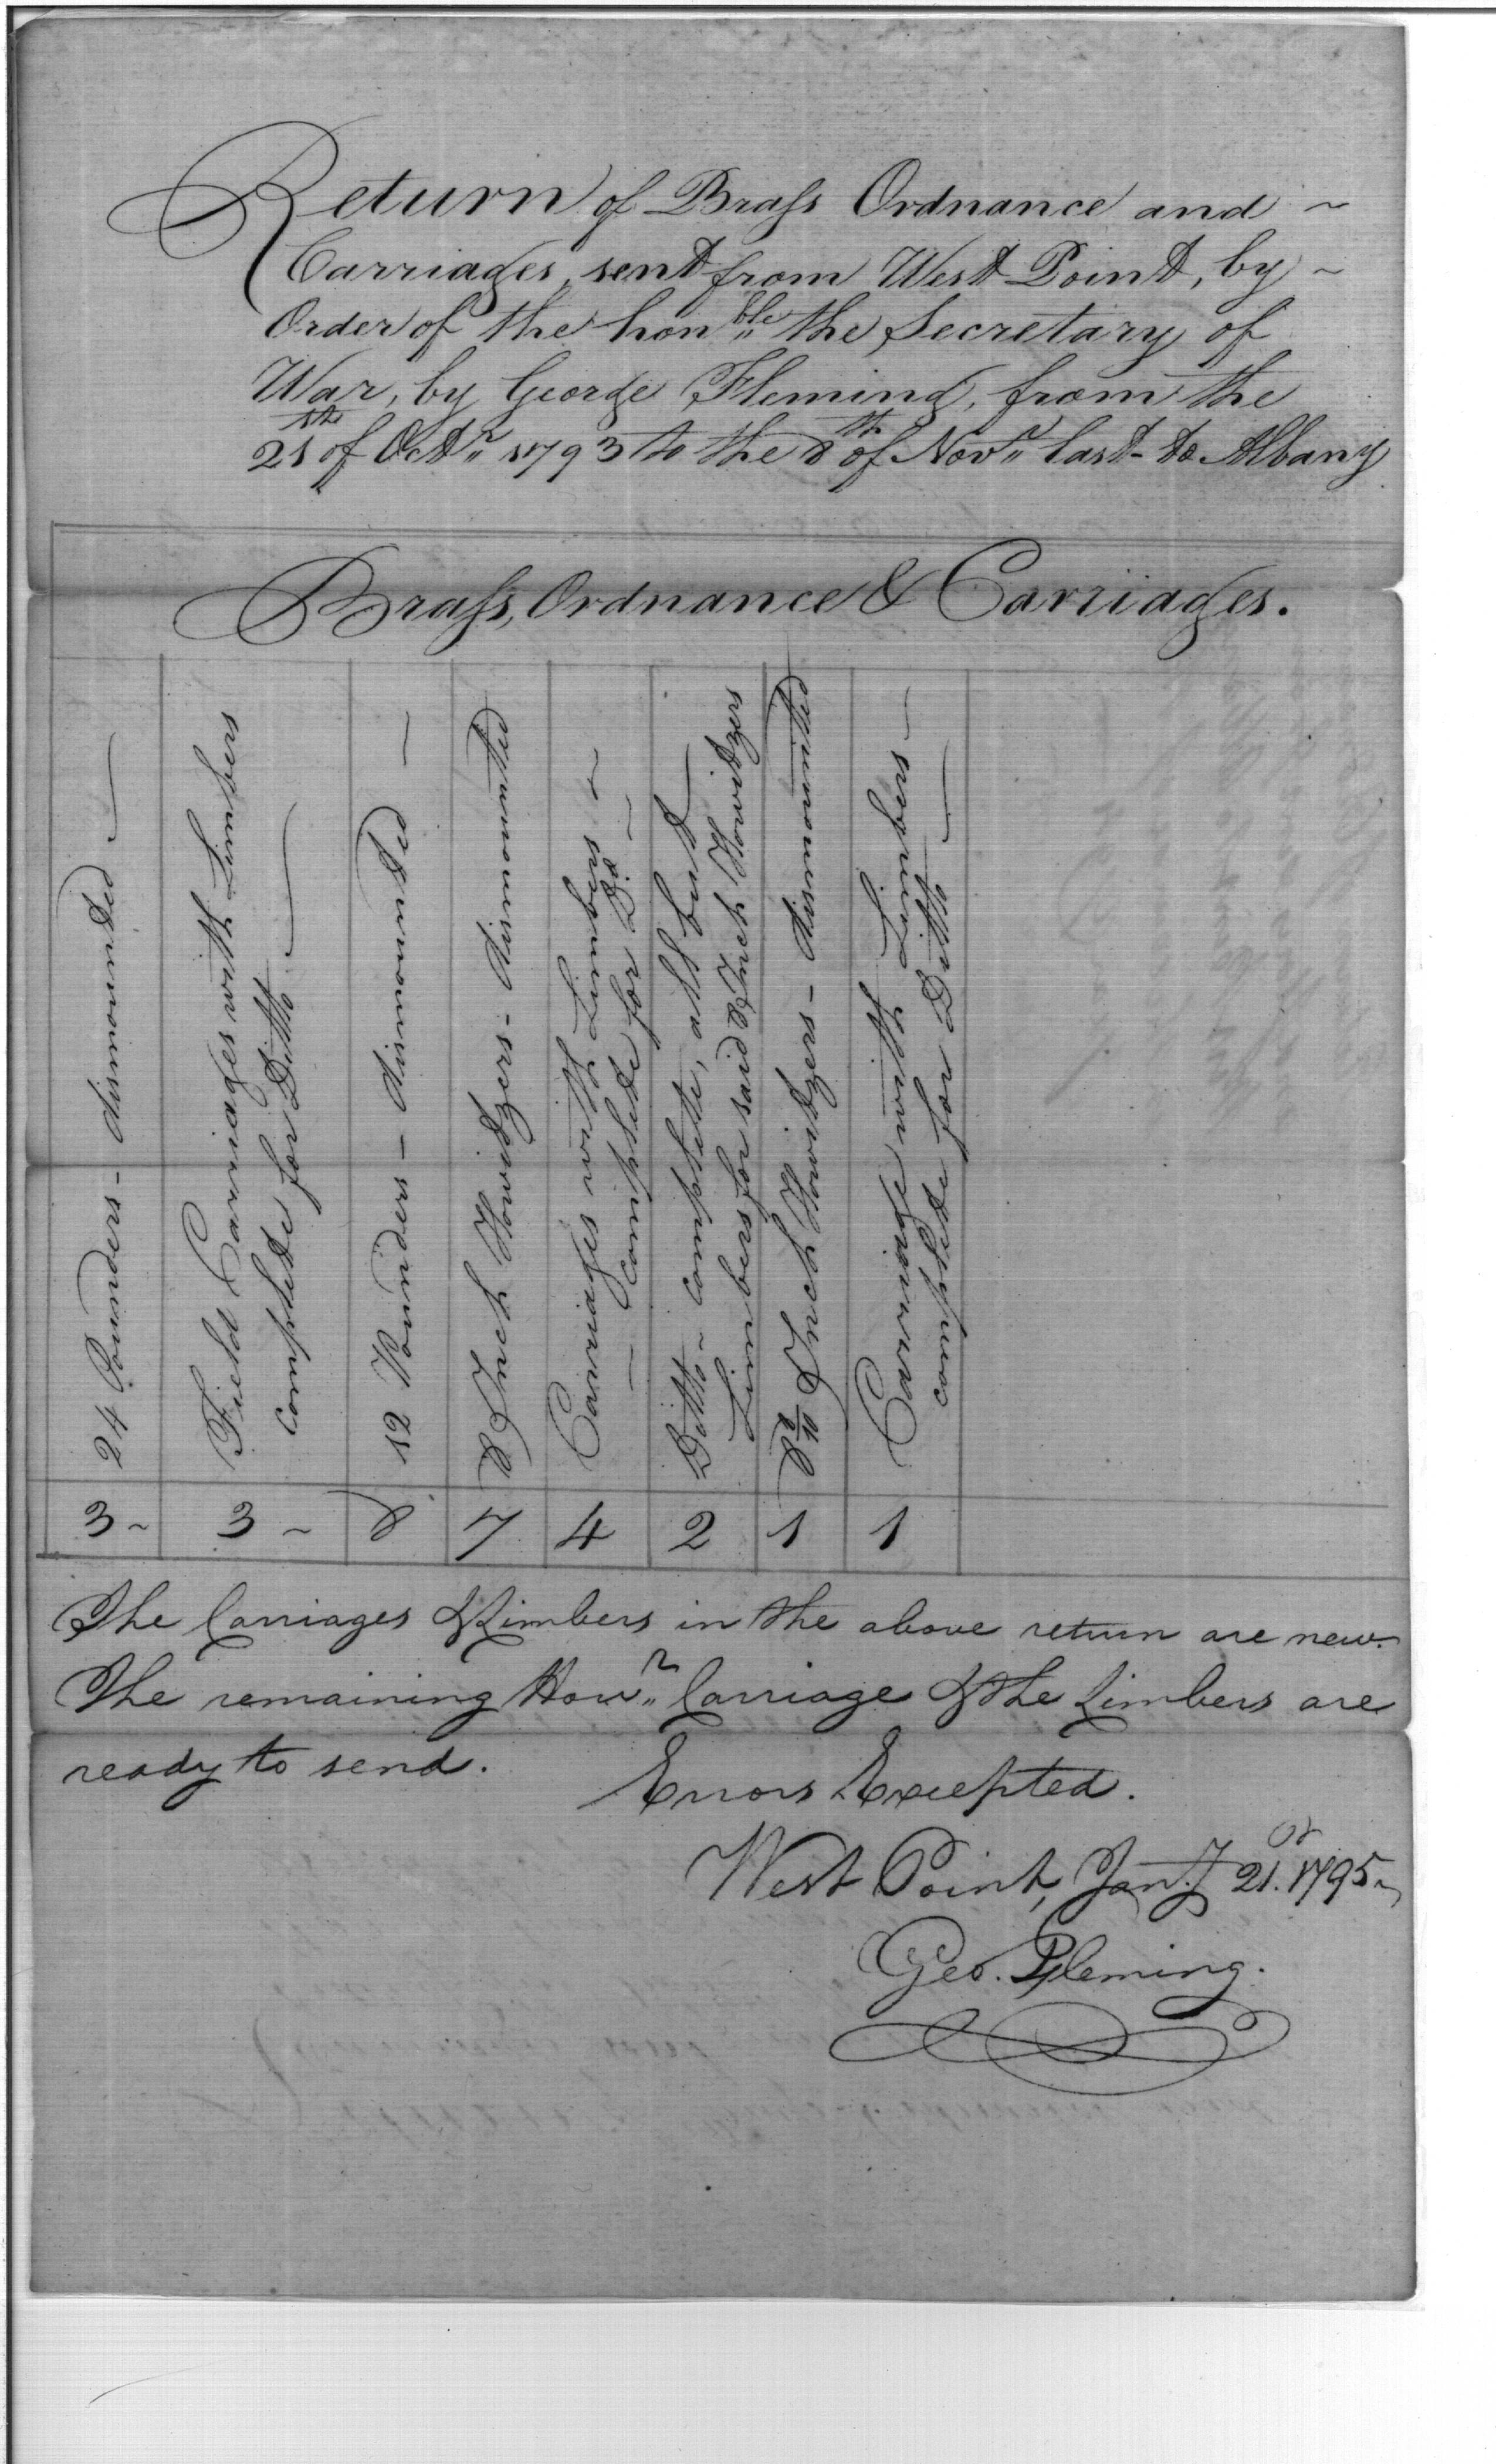 Return of Brass Ordnance and ~
Carriages, sent from West Point, by ~
Order of the honble the Secretary of
War, by George Fleming, from the
21st of Octr 1793 to the 8th of Novr last - to Albany
Brass, Ordnance & Carriages.
24 Pounders - dismounted
Field Carriages with Limbers
complete for Ditto
12 Pounders - dismounted
8 Inch Howitzers - dismounted
Carriages with Limbers
complete for Do
Ditto - complete, all but
Limbers for said 8 Inch Howitzers
8 1/2 Inch Howitzers - dismounted
Carriage with Limbers
complete for Ditto
3 ~ 3 ~ 8 7 4 2 1 1
The Carriages & Limbers in the above return are new.
The remaining Howr Carriage & the Limbers are
ready to send.
Errors Excepted.
West Point, Jany 21. 1795 ~
Geo. Fleming.